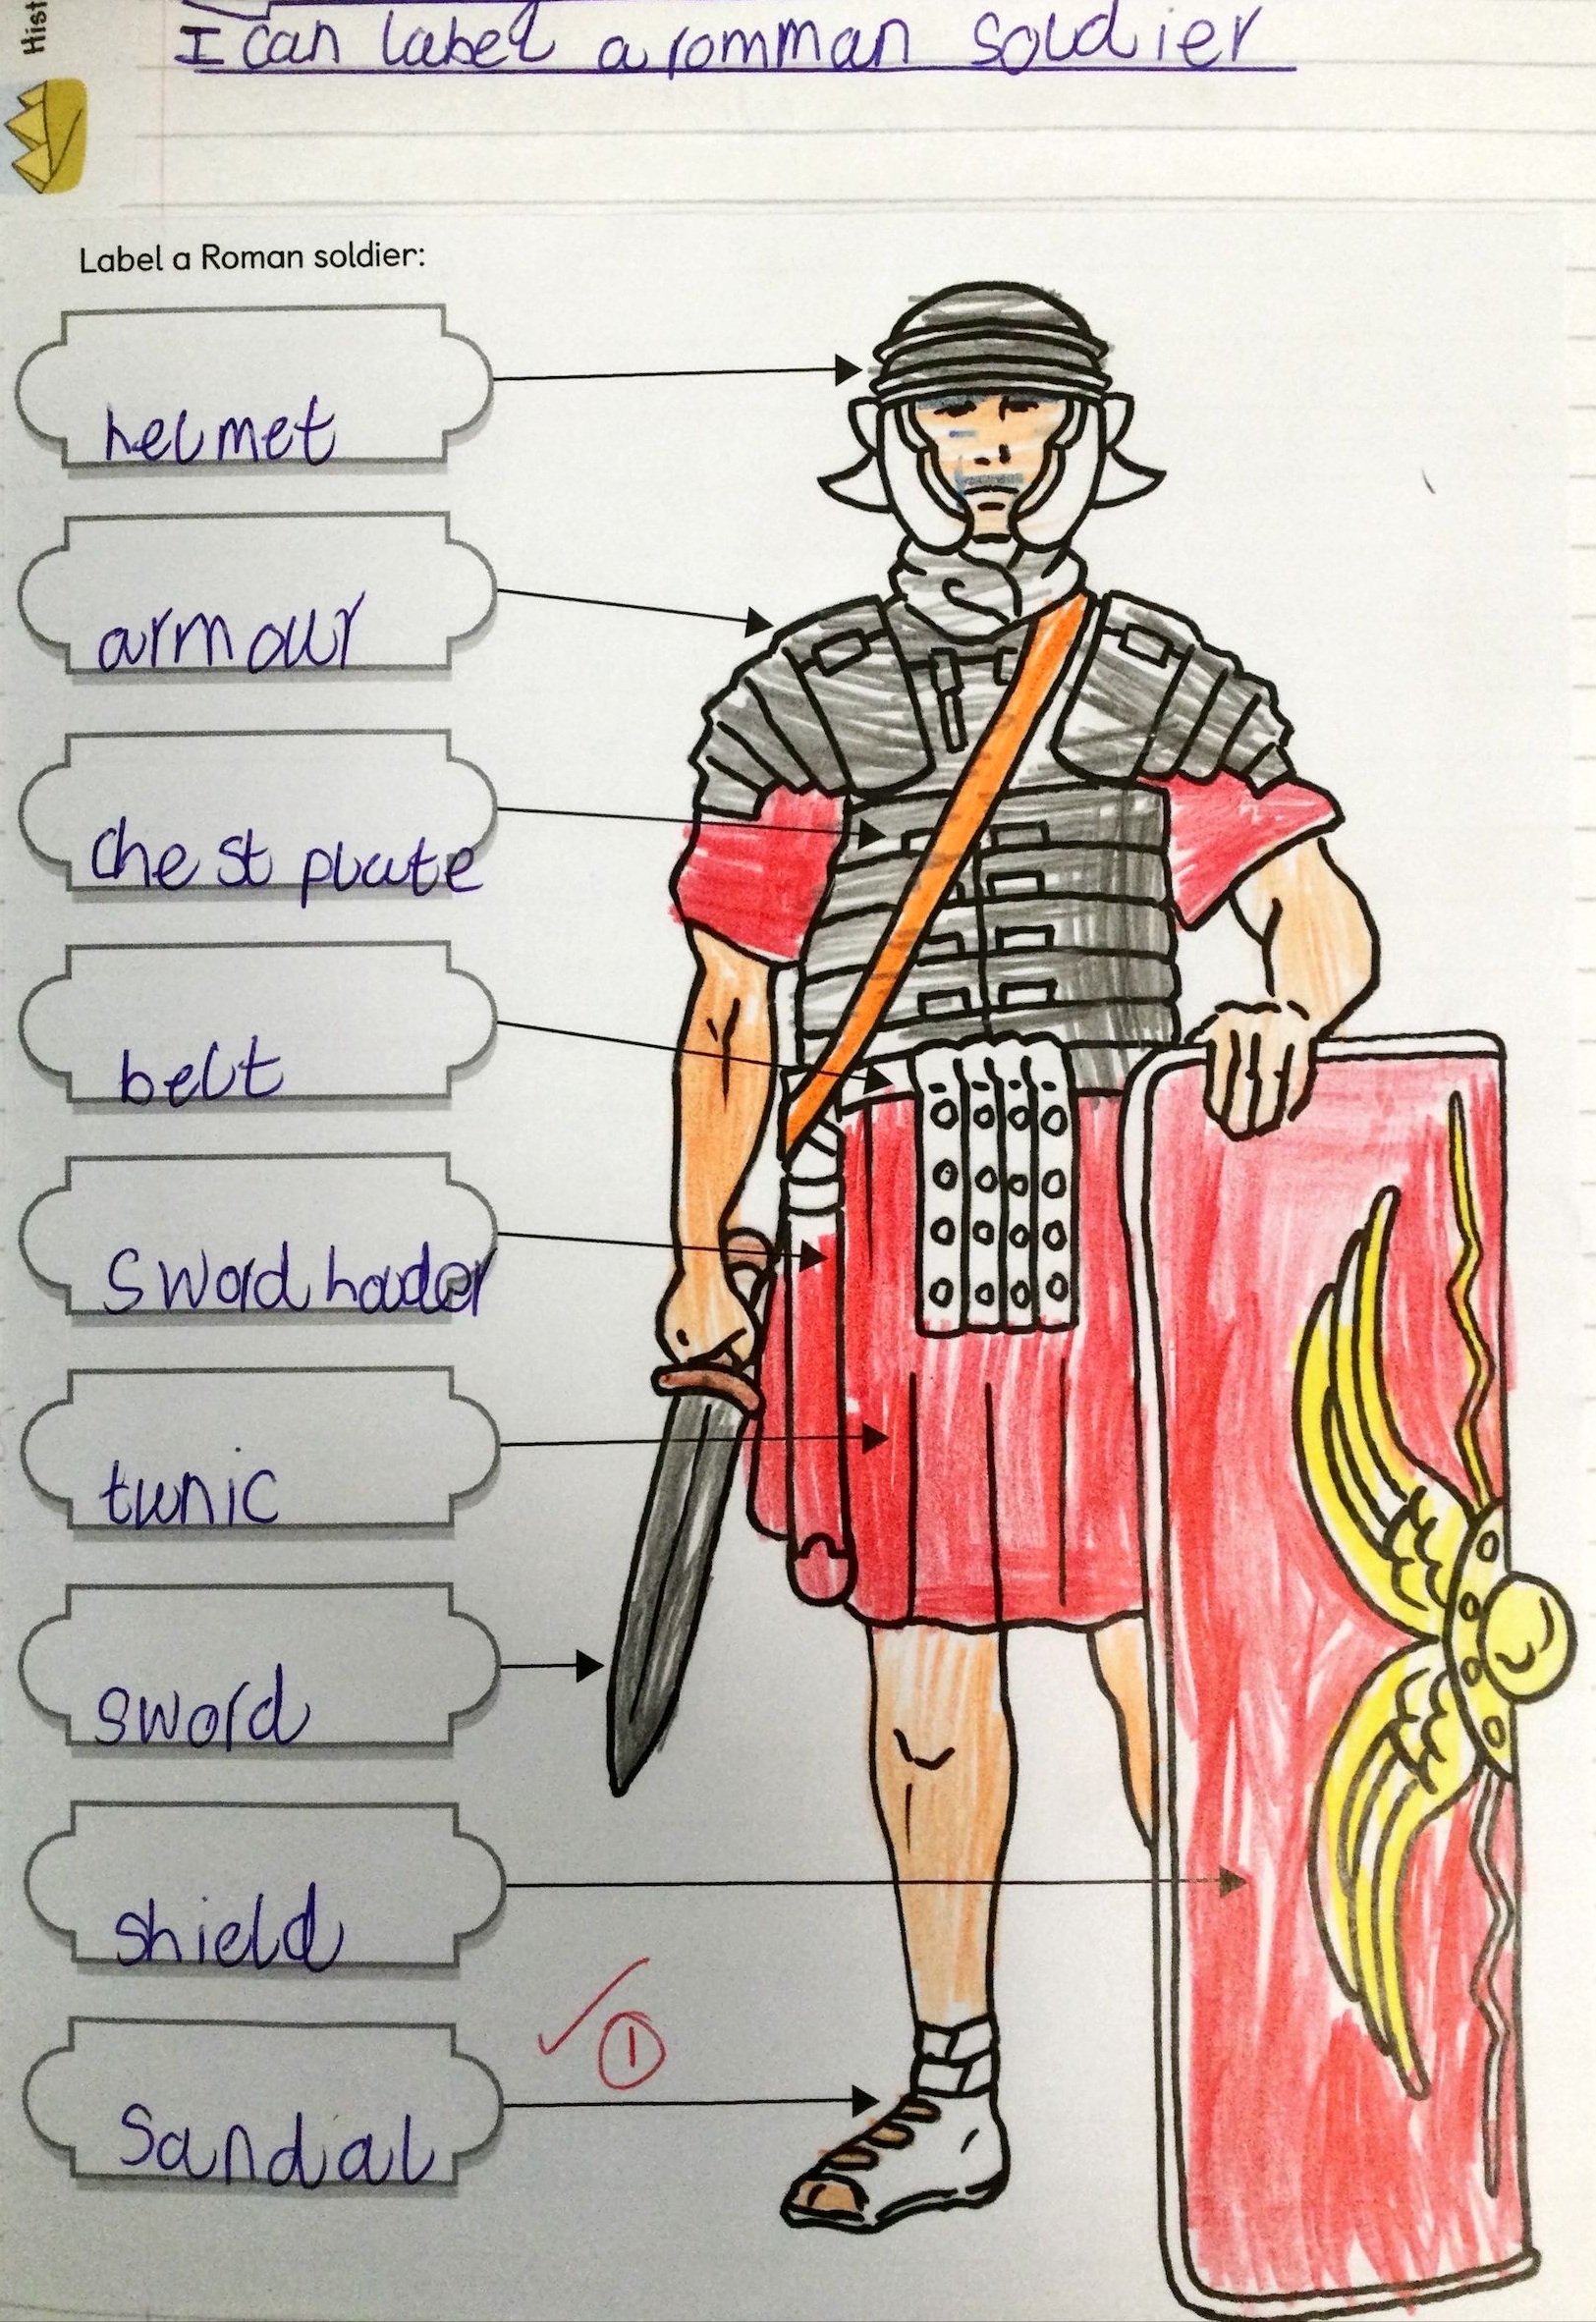 Hist
I can label a romman soldier
Label a Roman soldier:
helmet
armour
chest plate
belt
sword holder
tunic
sword
shield
Sandal
1